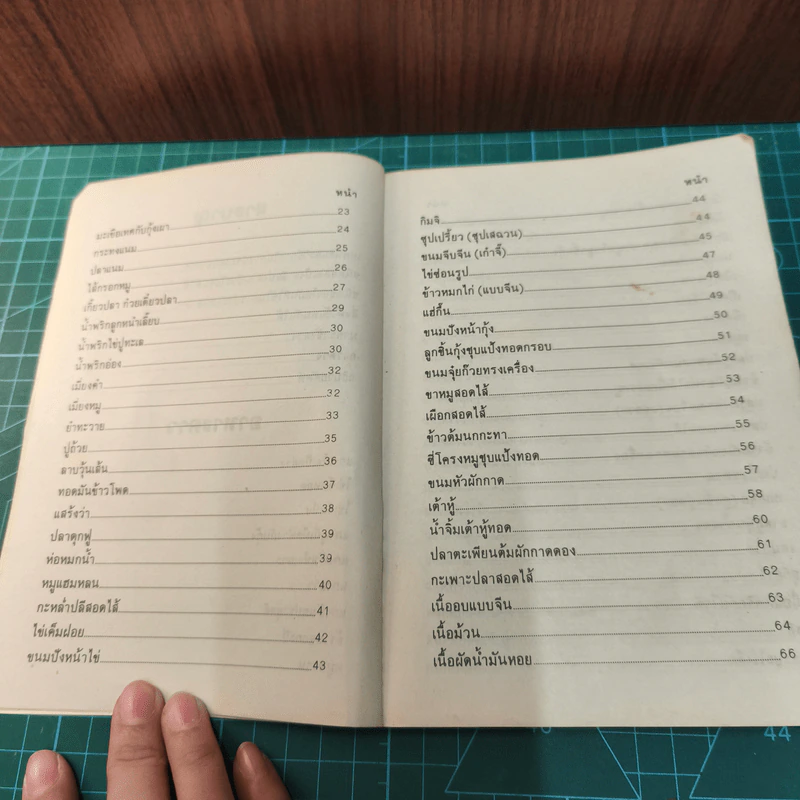 หน้า
มะเขือเทศกับกุ้งเผา 23
กระทงแนม 24
ปลาแนม 25
ไส้กรอกหมู 26
เกี้ยวปลา ก๋วยเตี๋ยวปลา 27
น้ำพริกลูกหนำเลี้ยบ 29
น้ำพริกไข่ปูทะเล 30
น้ำพริกอ่อง 30
เมี่ยงคำ 32
เมี่ยงหมู 32
ยำทะวาย 33
ปูถ้วย 35
ลาบวุ้นเส้น 36
ทอดมันข้าวโพด 37
แสร้งว่า 38
ปลาดุกฟู 39
ห่อหมกน้ำ 39
หมูแฮมหลน 40
กะหล่ำปลีสอดไส้ 41
ไข่เค็มฝอย 42
ขนมปังหน้าไข่ 43
หน้า
กิมจิ 44
ซุปเปรี้ยว (ซุปเสฉวน) 44
ขนมจีบจีน (เก๋าจี๊) 45
ไข่ซ่อนรูป 47
ข้าวหมกไก่ (แบบจีน) 48
แฮ่กึ้น 49
ขนมปังหน้ากุ้ง 50
ลูกชิ้นกุ้งชุบแป้งทอดกรอบ 51
ขนมจุ๋ยก๊วยทรงเครื่อง 52
ขาหมูสอดไส้ 53
เผือกสอดไส้ 54
ข้าวต้มนกกะทา 55
ซี่โครงหมูชุบแป้งทอด 56
ขนมหัวผักกาด 57
เต้าหู้ 58
น้ำจิ้มเต้าหู้ทอด 60
ปลาตะเพียนต้มผักกาดดอง 61
กะเพาะปลาสอดไส้ 62
เนื้ออบแบบจีน 63
เนื้อม้วน 64
เนื้อผัดน้ำมันหอย 66
44